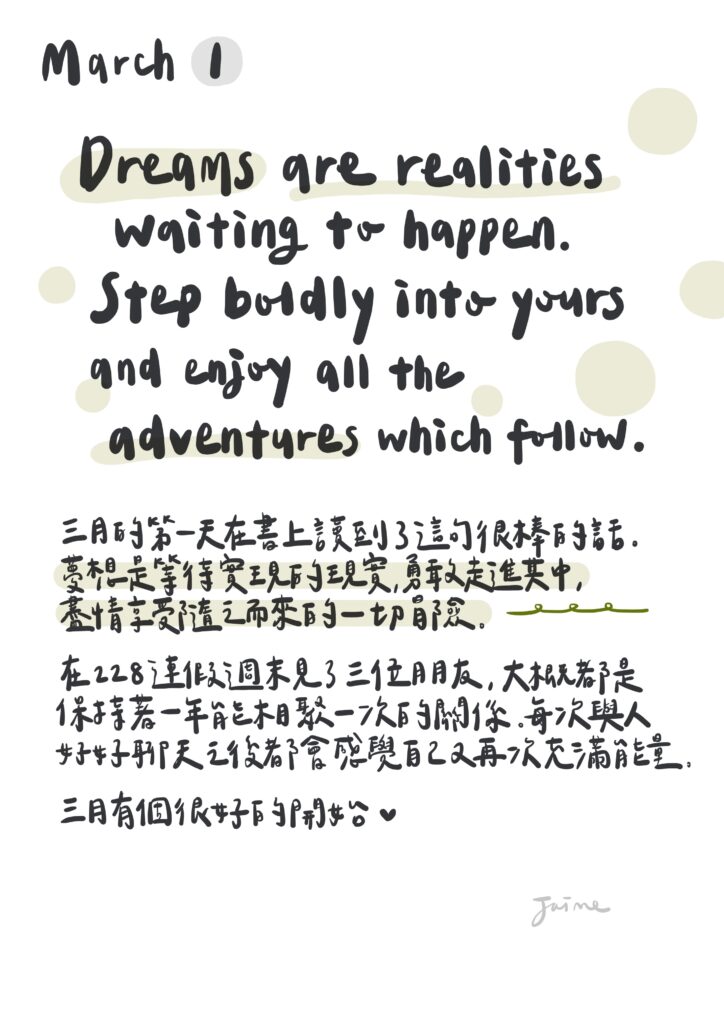 March 1
Dreams are realities
waiting to happen.
Step boldly into yours
and enjoy all the
adventures which follow.
三月的第一天在書上讀到了這句很棒的話.
夢想是等待實現的現實,勇敢走進其中,
盡情享受隨之而來的一切冒險。
在228連假週末見了三位朋友,大概都是
保持著一年能相聚一次的關係.每次與人
好好聊天之後都會感覺自己又再次充滿能量.
三月有個很好的開始♥
Jaime